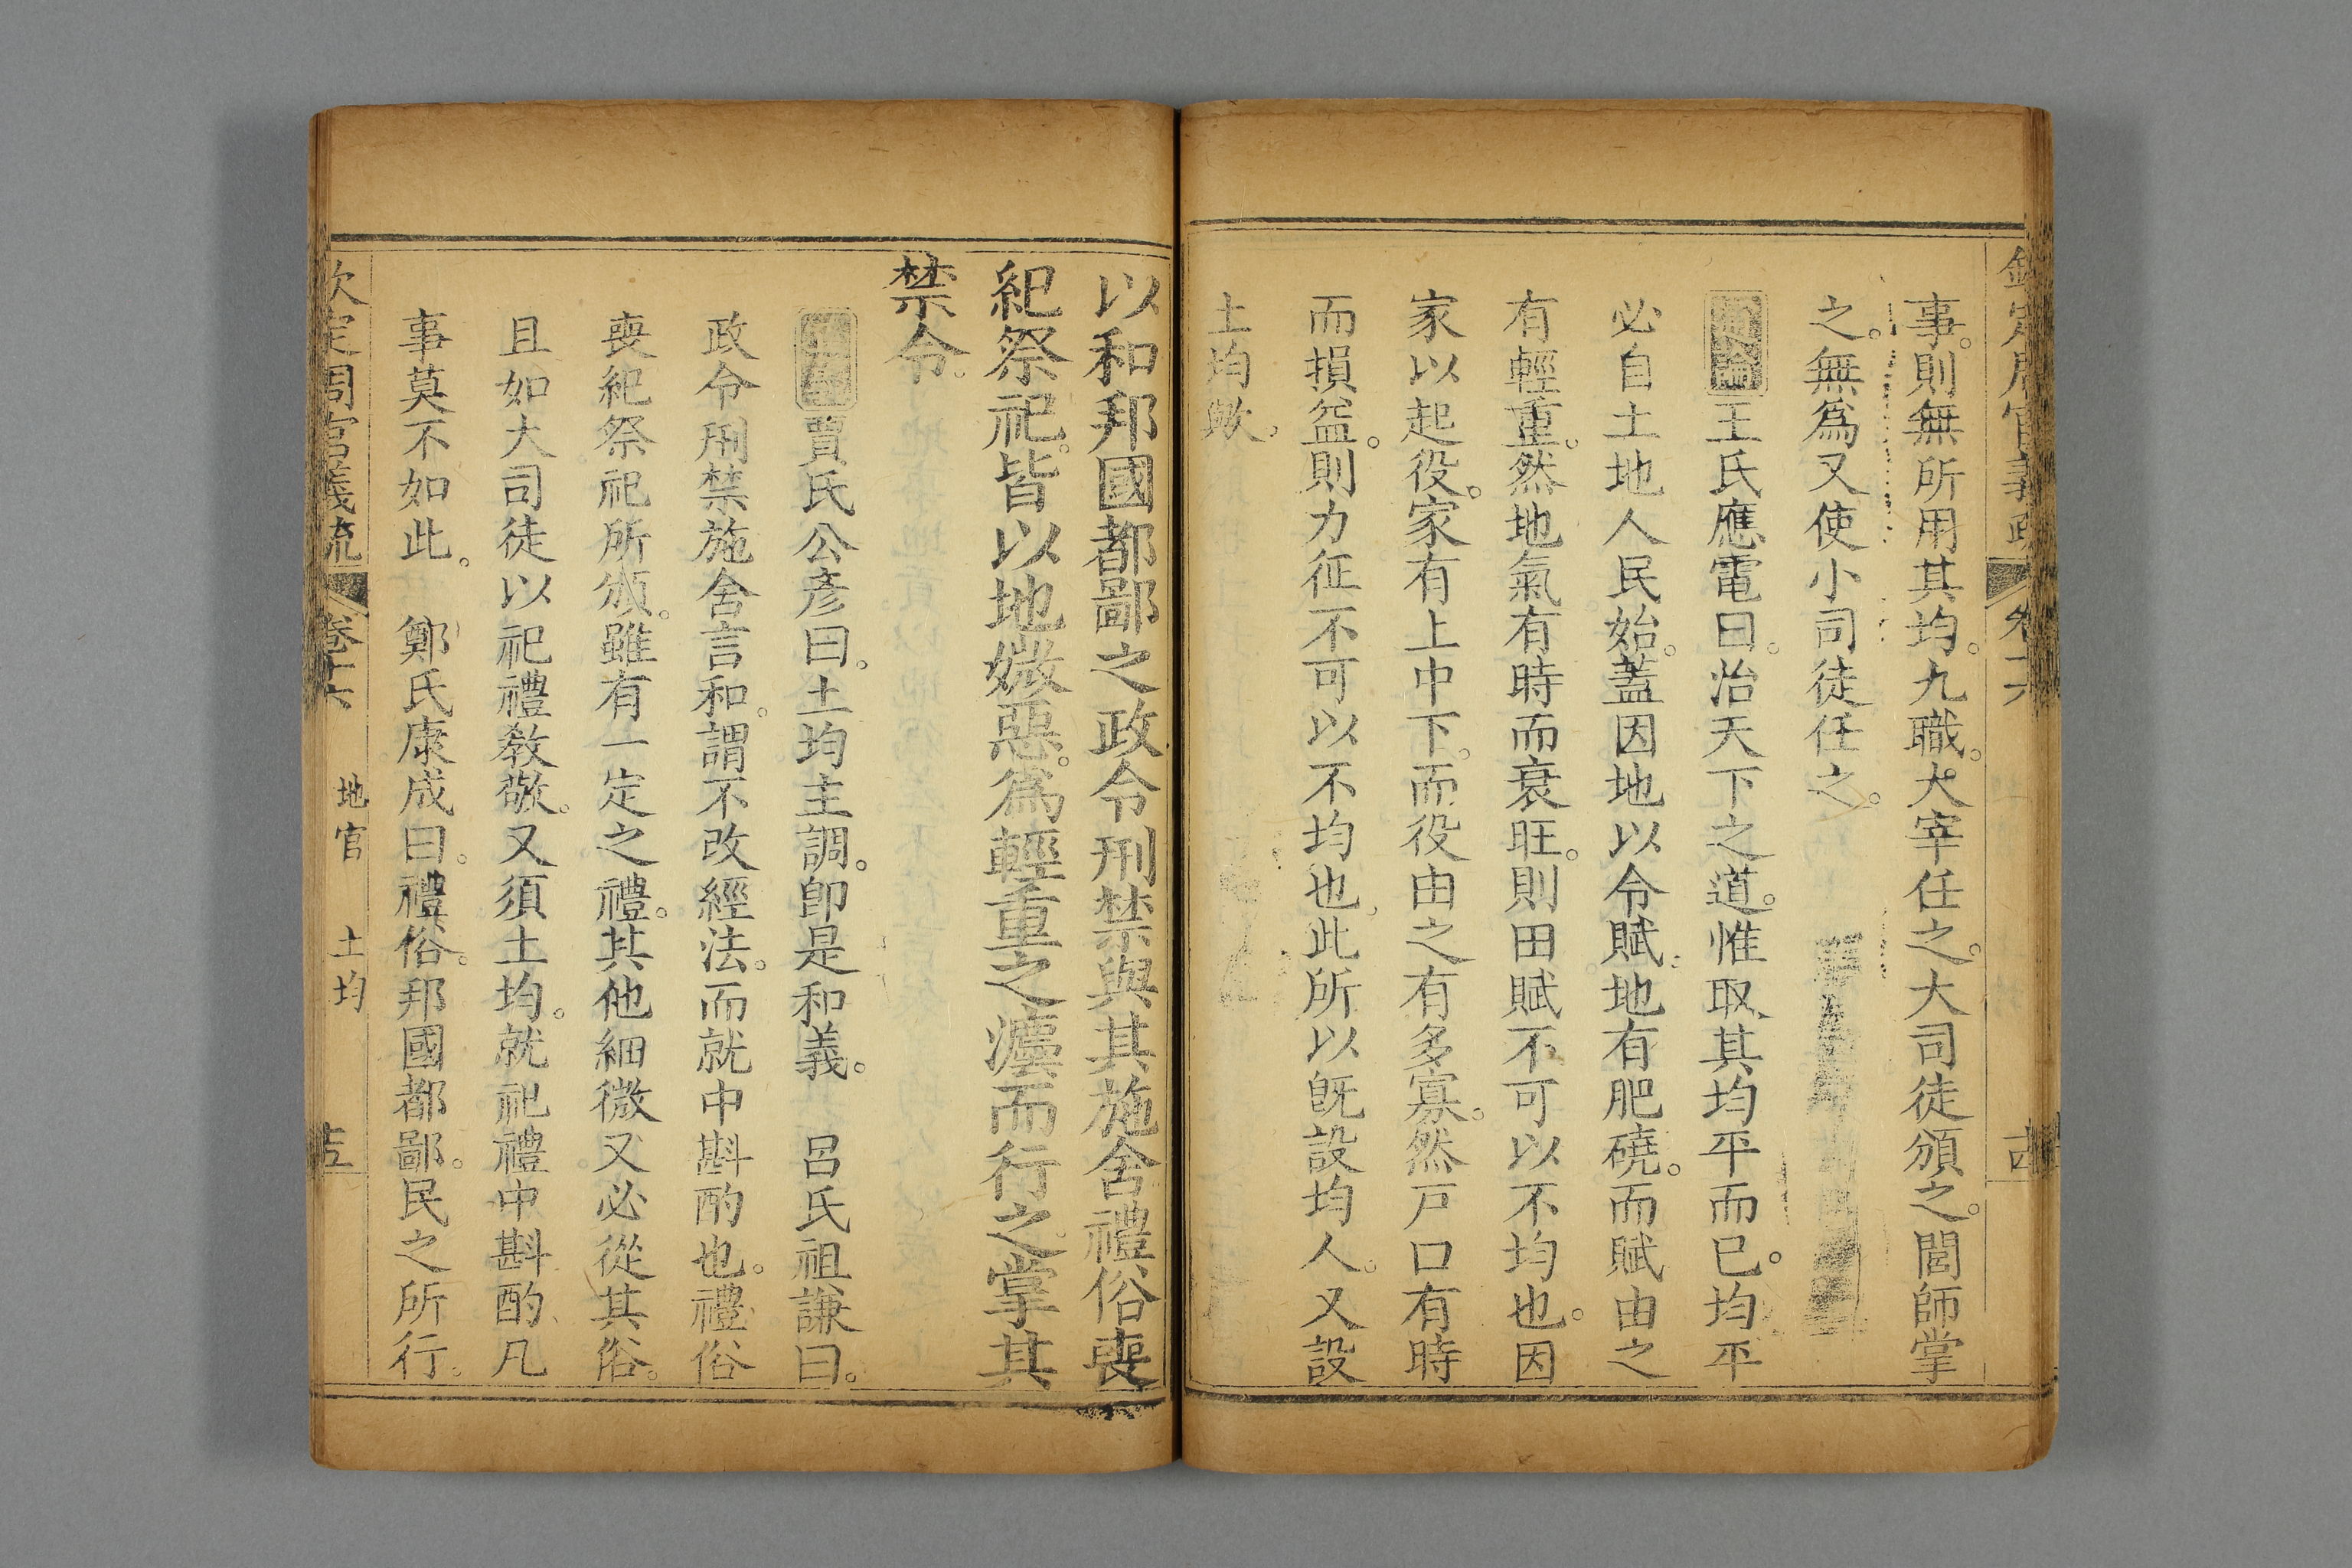 欽定周官義疏 卷十六 十四
事。則無所用其均。九職。大宰任之。大司徒頒之。閭師掌
之。無爲又使小司徒任之。
總論 王氏應電曰。治天下之道。惟取其均平而已。均平
必自土地人民始。蓋因地以令賦。地有肥磽。而賦由之
有輕重。然地氣有時而衰旺。則田賦不可以不均也。因
家以起役。家有上中下。而役由之有多寡。然戸口有時
而損益。則力征不可以不均也。此所以旣設均人。又設
土均歟。
以和邦國都鄙之政令刑禁與其施舍禮俗喪
紀祭祀。皆以地媺惡。爲輕重之灋而行之。掌其
禁令。
賈氏公彥曰。土均主調。卽是和義。 呂氏祖謙曰。
政令刑禁施舍言和。謂不改經法。而就中斟酌也。禮俗
喪紀祭祀所頒。雖有一定之禮。其他細微又必從其俗。
且如大司徒以祀禮敎敬。又須土均。就祀禮中斟酌。凡
事莫不如此。 鄭氏康成曰。禮俗。邦國都鄙。民之所行。
欽定周官義疏 卷十六 地官 土均 十五